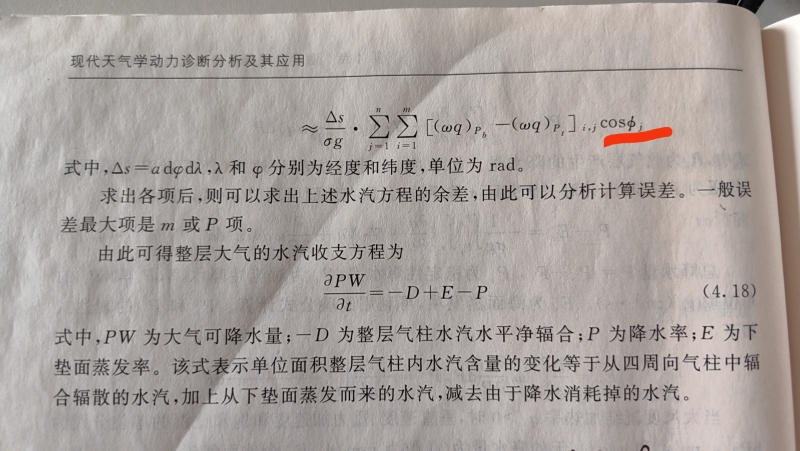 现代天气学动力诊断分析及其应用
≈ Δs/σg · ∑_{j=1}^{n} ∑_{i=1}^{m} [(ωq)_{P_b} −(ωq)_{P_t}]_{i,j} cosϕ_j
式中,Δs=a dφdλ,λ 和 φ 分别为经度和纬度,单位为 rad。
求出各项后,则可以求出上述水汽方程的余差,由此可以分析计算误差。一般误
差最大项是 m 或 P 项。
由此可得整层大气的水汽收支方程为
∂PW/∂t=−D+E−P (4.18)
式中,PW 为大气可降水量;−D 为整层气柱水汽水平净辐合;P 为降水率;E 为下
垫面蒸发率。该式表示单位面积整层气柱内水汽含量的变化等于从四周向气柱中辐
合辐散的水汽,加上从下垫面蒸发而来的水汽,减去由于降水消耗掉的水汽。